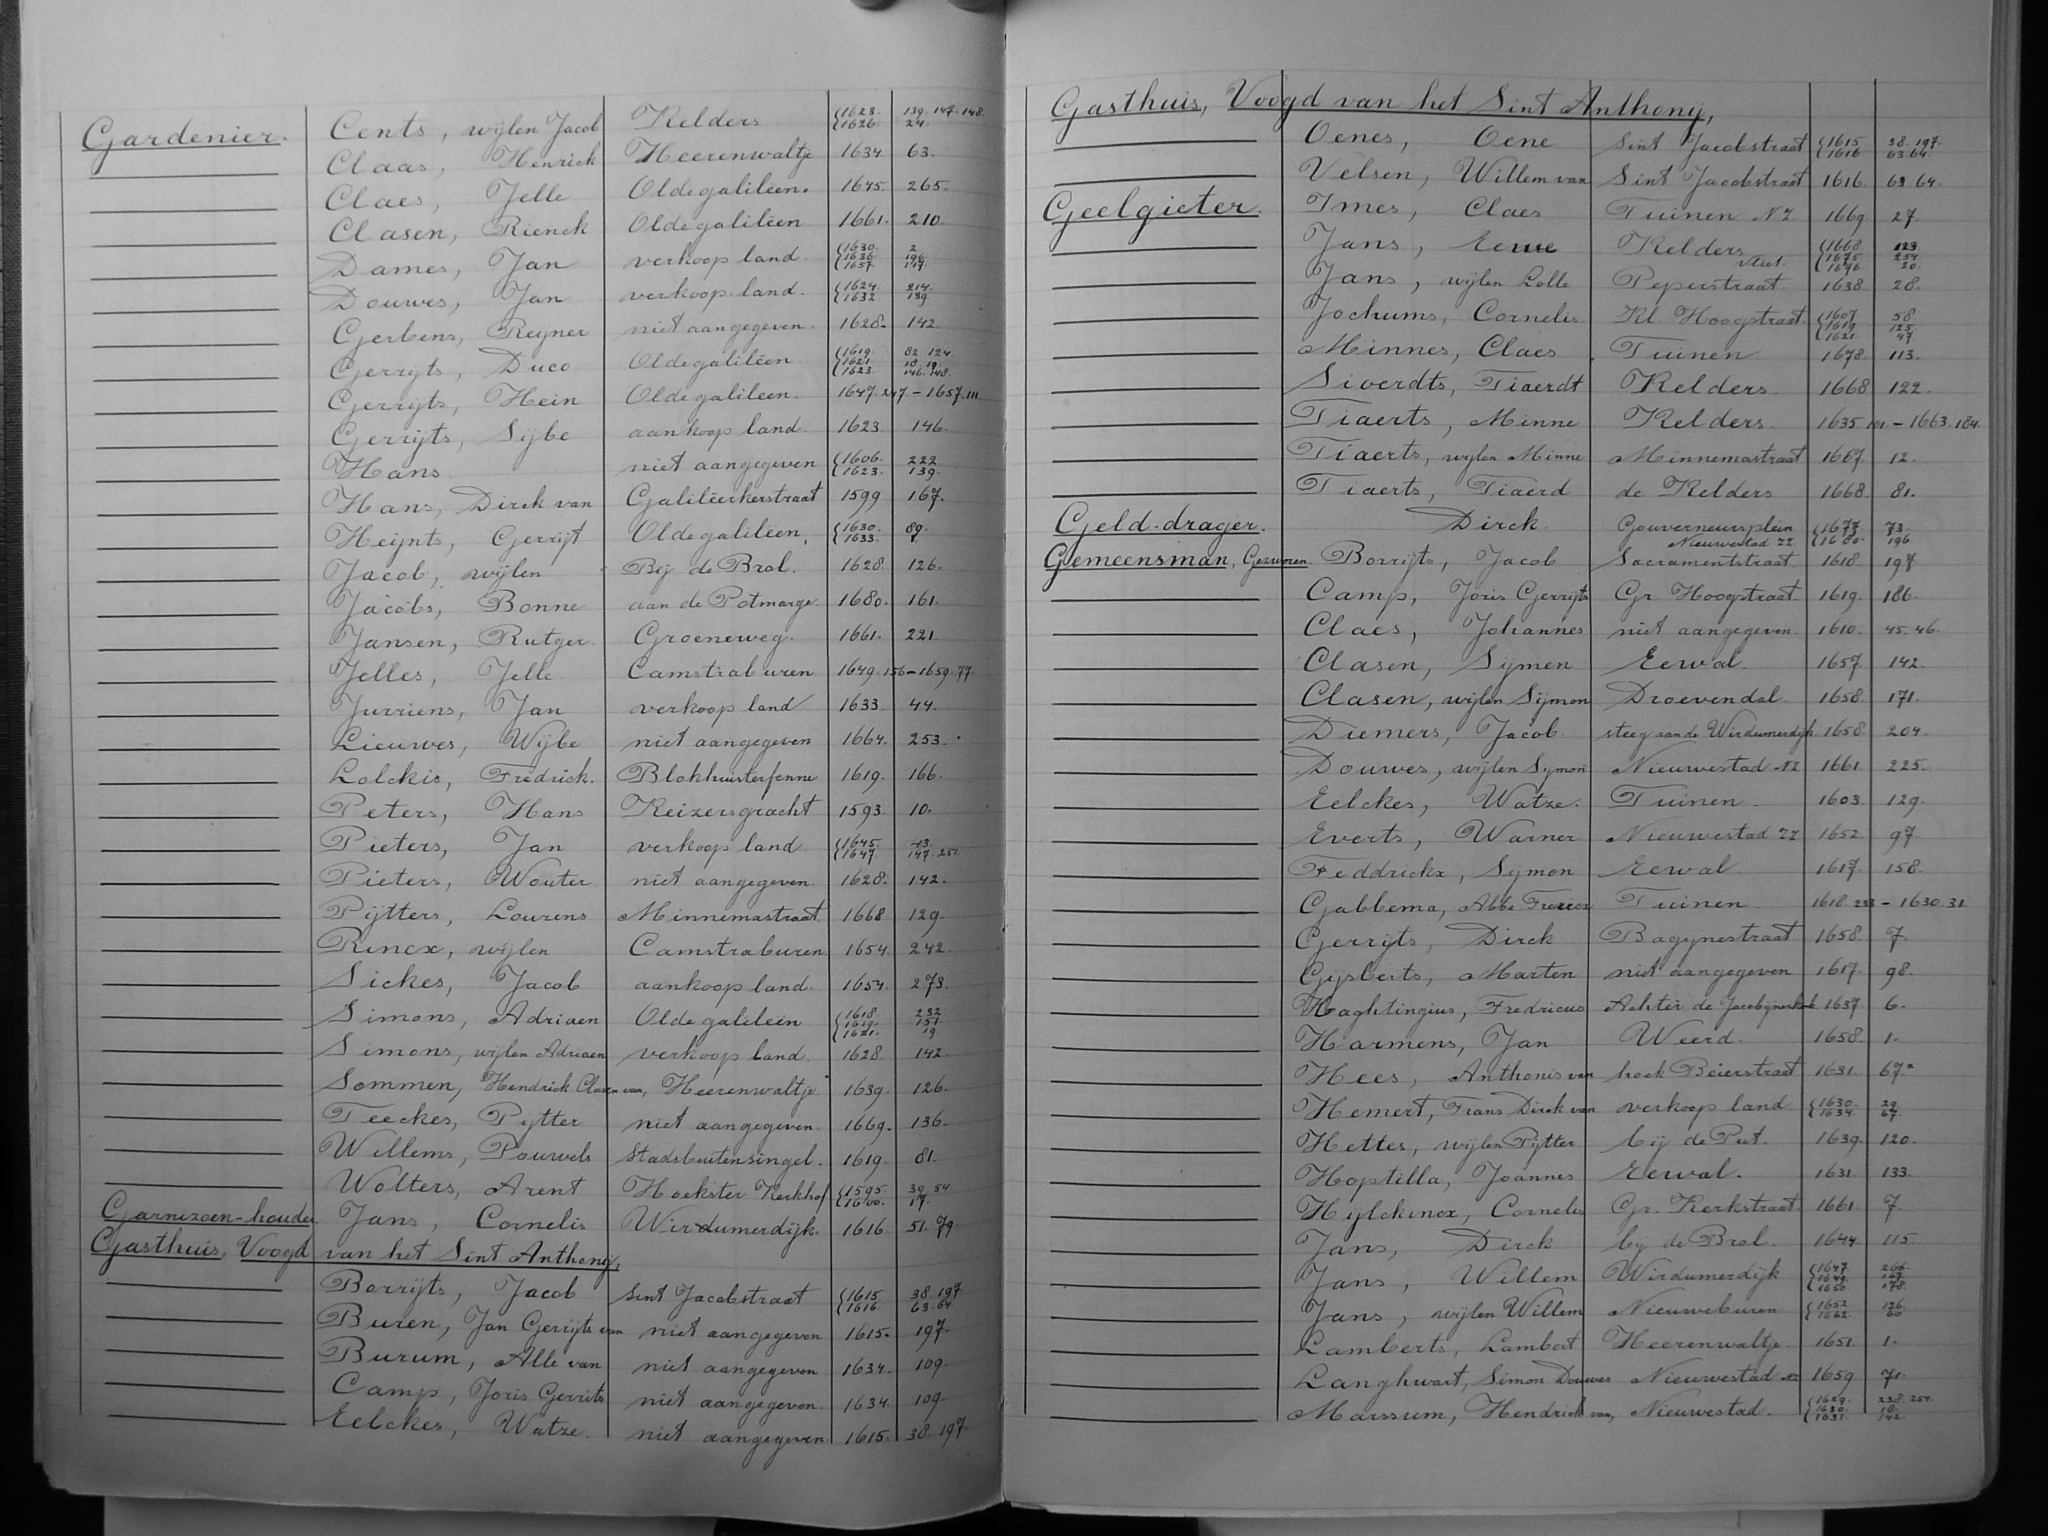 Gardenier. Cents, wijlen Jacob Kelders {1623. 139. 147. 148. {1626. 24.
Claas, Henrick Heerenwaltje 1634. 63.
Claes, Jelle Oldegalileën. 1645. 265.
Clasen, Rienck Oldegalileën 1661. 210.
Dames, Jan verkoop land. {1630. 2 {1636. 196. {1657. 117.
Douwes, Jan verkoop land. {1624. 214. {1632 139.
Gerbens, Reijner niet aangegeven. 1628. 142.
Gerrijts, Duco Oldegalileën {1619. 82. 124. {1621. 18. 19. {1623. 146. 148.
Gerrijts, Hein Oldegalileën. 1647. 247 - 1657. 111.
Gerrijts, Sijbe aankoop land. 1623. 146.
Hans. niet aangegeven {1606. 222. {1623. 139.
Hans, Dirck van Galileërkerstraat 1599 167.
Heijnts, Gerrijt Oldegalileën, {1630. 89. {1633. 7.
Jacob, wijlen Bij de Brol. 1628. 126.
Jacobs, Bonne aan de Potmarge. 1680. 161.
Jansen, Rutger Groeneweg. 1661. 221.
Jelles, Jelle Camstraburen 1649. 156 - 1659. 77
Jurriens, Jan verkoop land 1633. 44.
Lieuwes, Wijbe niet aangegeven 1664. 253.
Lolckis, Fredrick. Blokhuisterfenne 1619. 166.
Peters, Hans Keizersgracht 1593. 10.
Pieters, Jan verkoop land. {1645. 43. {1647. 147. 251.
Pieters, Wouter niet aangegeven. 1628. 142.
Pijtters, Lourens Minnemastraat. 1668 129.
Rincx, wijlen Camstraburen 1654. 242.
Sickes, Jacob aankoop land. 1654. 273.
Simons, Adriaen Oldegalileën {1618. 232 {1619. 151. {1621. 19
Simons, wijlen Adriaen verkoop land. 1628. 142.
Sommen, Hendrick Clasen van, Heerenwaltje 1639. 126.
Teeckes, Pijtter niet aangegeven. 1669. 136.
Willems, Pouwels Stadsbuitensingel. 1619. 81.
Wolters, Arent Hoekster Kerkhof {1595. 39. 54 {1600. 17.
Garnizoen-houder. Jans, Cornelis Wirdumerdijk. 1616. 51. 79.
Gasthuis, Voogd van het Sint Anthonij,
Borrijts, Jacob Sint Jacobstraat {1615. 38. 197 {1616. 63. 64.
Buren, Jan Gerrijts van niet aangegeven 1615. 197.
Burum, Alle van niet aangegeven 1634. 109.
Camp, Joris Gerrits niet aangegeven. 1634. 109.
Eelckes, Watze. niet aangegeven 1615. 38. 197.
Gasthuis, Voogd van het Sint Anthonij,
Oenes, Oene Sint Jacobstraat {1615 38. 197. {1616. 63. 64.
Velsen, Willem van Sint Jacobstraat 1616. 63 64.
Geelgieter. Imes, Claes Tuinen NZ 1669. 27.
Jans, Eeuwe Kelders {1668. 123. {1675. 254. {1676. 20.
Jans, wijlen Lolle Peperstraat. 1638 28.
Jochums, Cornelis Kl. Hoogstraat. {1607. 58 {1619. 125. {1621. 47
Minnes, Claes Tuinen. 1678. 113.
Siverdts, Tiaerdt Kelders. 1668. 122.
Tiaerts, Minne Kelders. 1635. 101. - 1663. 184.
Tiaerts, wijlen Minne Minnemastraat 1667. 12.
Tiaerts, Tiaerd de Kelders 1668. 81.
Geld-drager. Dirck Gouverneursplein {1677. 73. Nieuwestad ZZ {1680. 196.
Gemeensman, Gezworen. Borrijts, Jacob Sacramentstraat. 1618. 197
Camp, Joris Gerrijts Gr. Hoogstraat. 1619. 186.
Claes, Johannes niet aangegeven. 1610. 45. 46.
Clasen, Sijmen Eewal. 1657. 142.
Clasen, wijlen Sijmon Droevendal. 1658. 171.
Diemers, Jacob. steeg aan de Wirdumerdijk. 1658. 204.
Douwes, wijlen Symon Nieuwestad NZ 1661. 225.
Eelckes, Watze. Tuinen. 1603. 129.
Everts, Warner Nieuwestad ZZ 1652. 97
Feddrickx, Symon Eewal 1617. 158.
Gabbema, Abbe Freercx Tuinen 1618. 233 - 1630. 31.
Gerrijts, Dirck Bagijnestraat 1658. 7.
Gijsberts, Marten niet aangegeven 1617. 98.
Haghtingius, Fredricus Achter de Jacobijnerkerk 1637. 6.
Harmens, Jan Weerd. 1658. 1.
Hees, Anthonis van hoek Beierstraat 1631. 67.
Hemert, Frans Dirck van verkoop land {1630. 29. {1634. 67.
Hettes, wijlen Pijtter bij de Put. 1639. 120.
Hoptilla, Joannes Eewal. 1631. 133.
Hylckinox, Cornelis Gr. Kerkstraat. 1661. 7
Jans, Dirck bij de Brol. 1644. 115.
Jans, Willem Wirdumerdijk {1647. 266. {1649. 167. {1650. 178.
Jans, wijlen Willem Nieuweburen {1652. 126. {1662. 60
Lamberts, Lambert Heerenwaltje. 1651. 1.
Langhwart, Simon Douwes Nieuwestad NZ 1659. 71.
Marssum, Hendrick van, Nieuwestad. {1629. 238. 254. {1630. 18. {1631. 142.